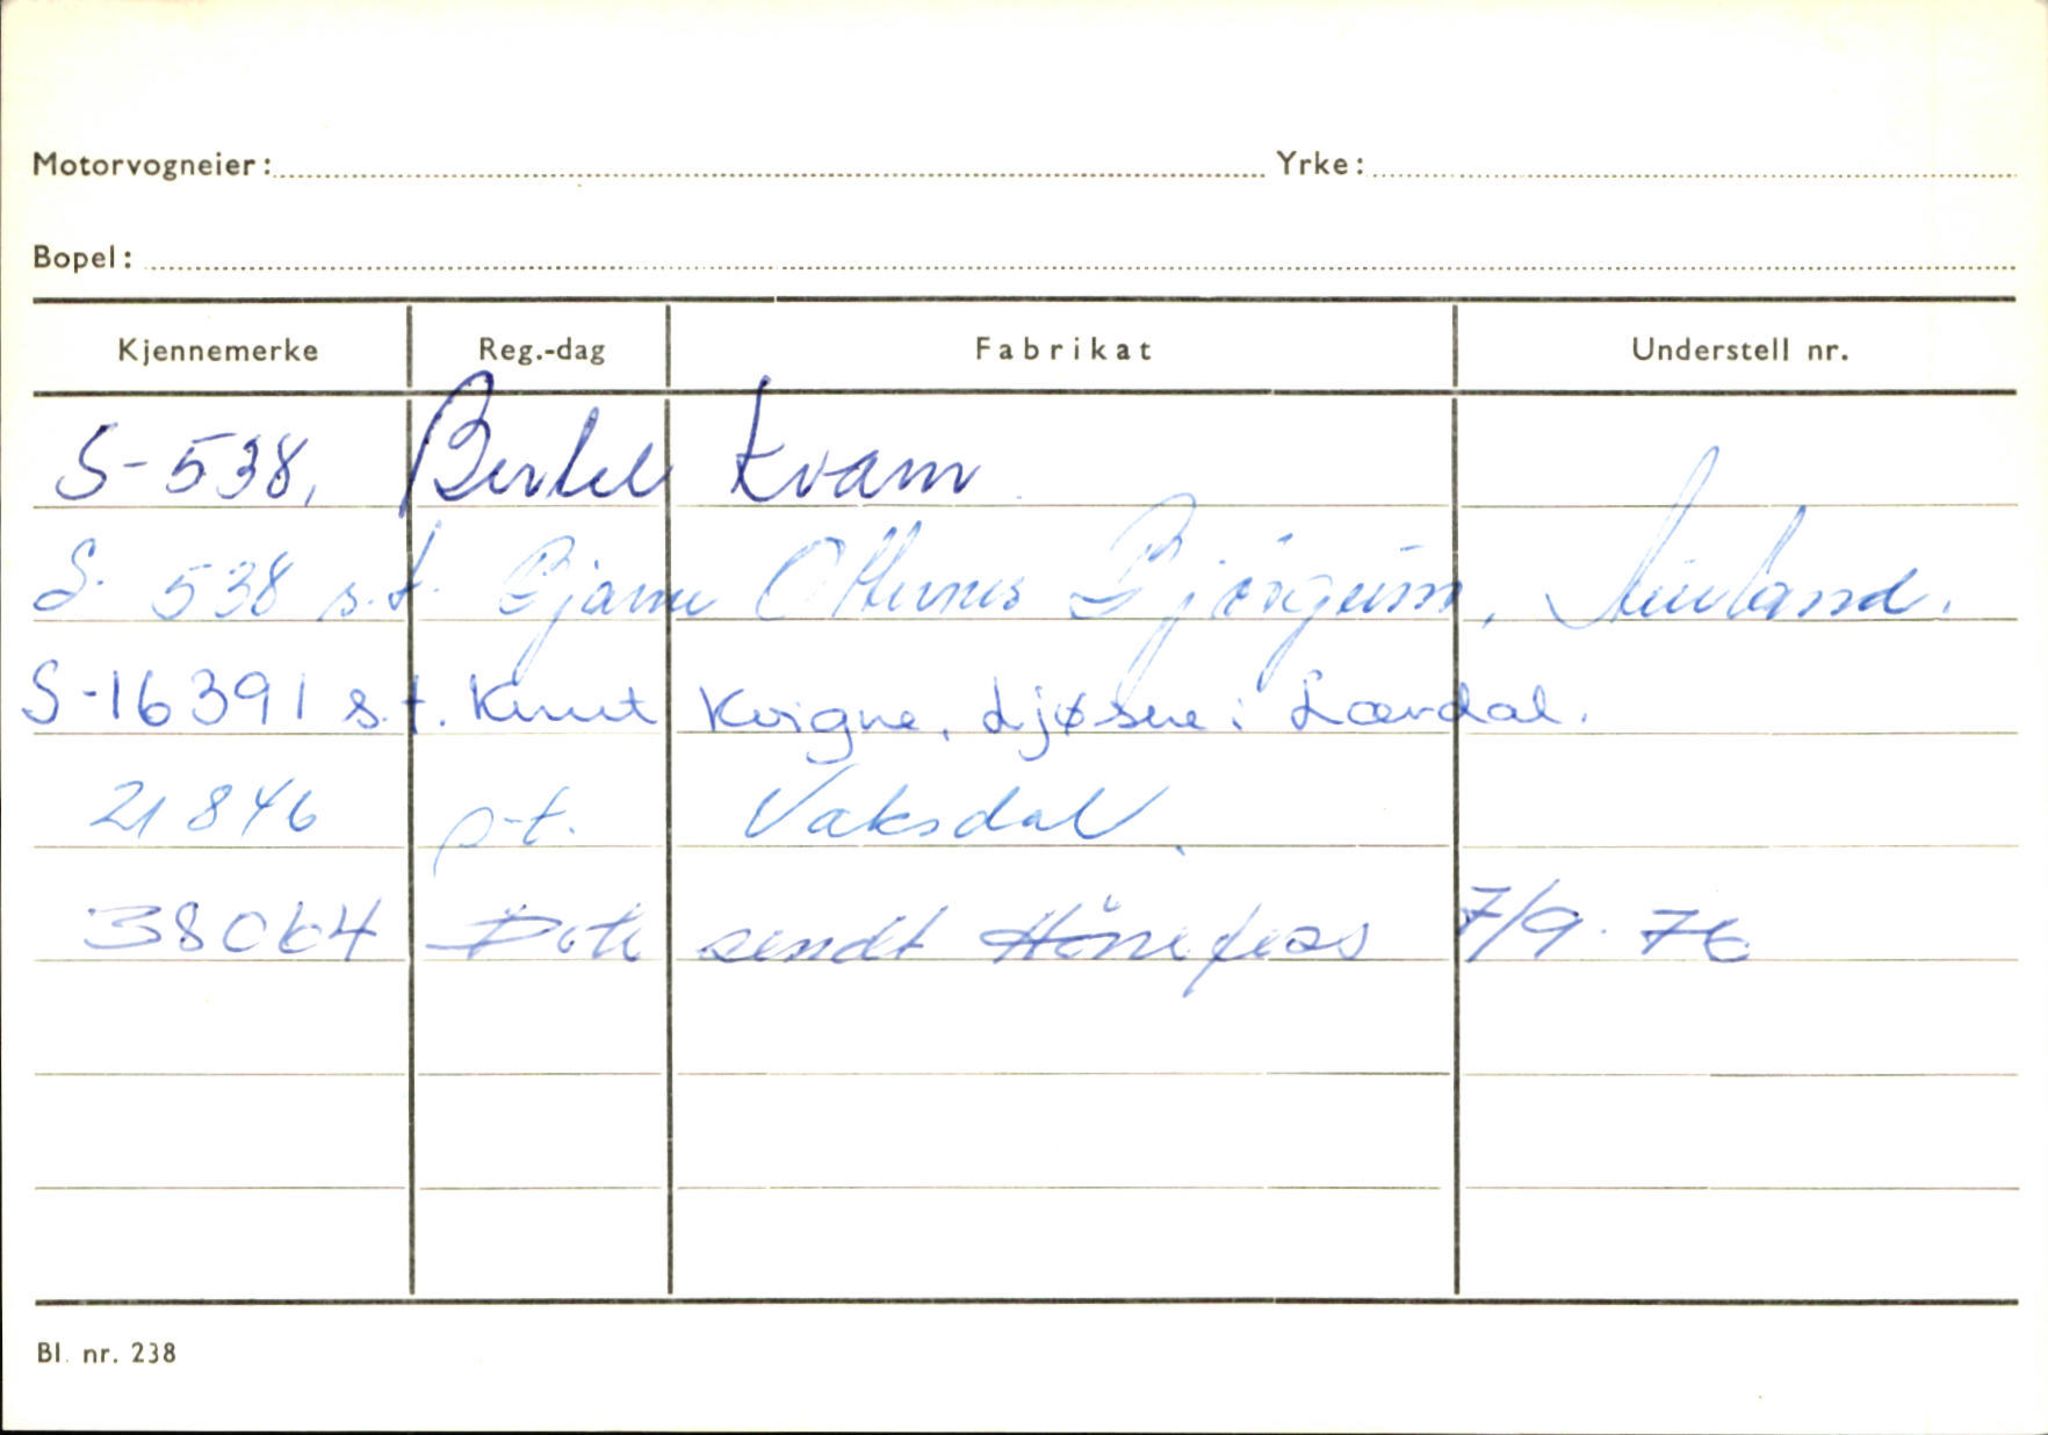 Motorvogneier: Yrke:
Bopel:
Kjennemerke Reg.-dag Fabrikat Understell nr.
S-538, Bertel Kvam
S. 538 s.t. Bjarne Otternes Bjørgum, Aurland.
S-16391 s.t. Knut Kvigne, Ljøsne i Lærdal.
21846 p-t. Vaksdal
38064 sendt Hönefoss 7/9. 76
Bl. nr. 238